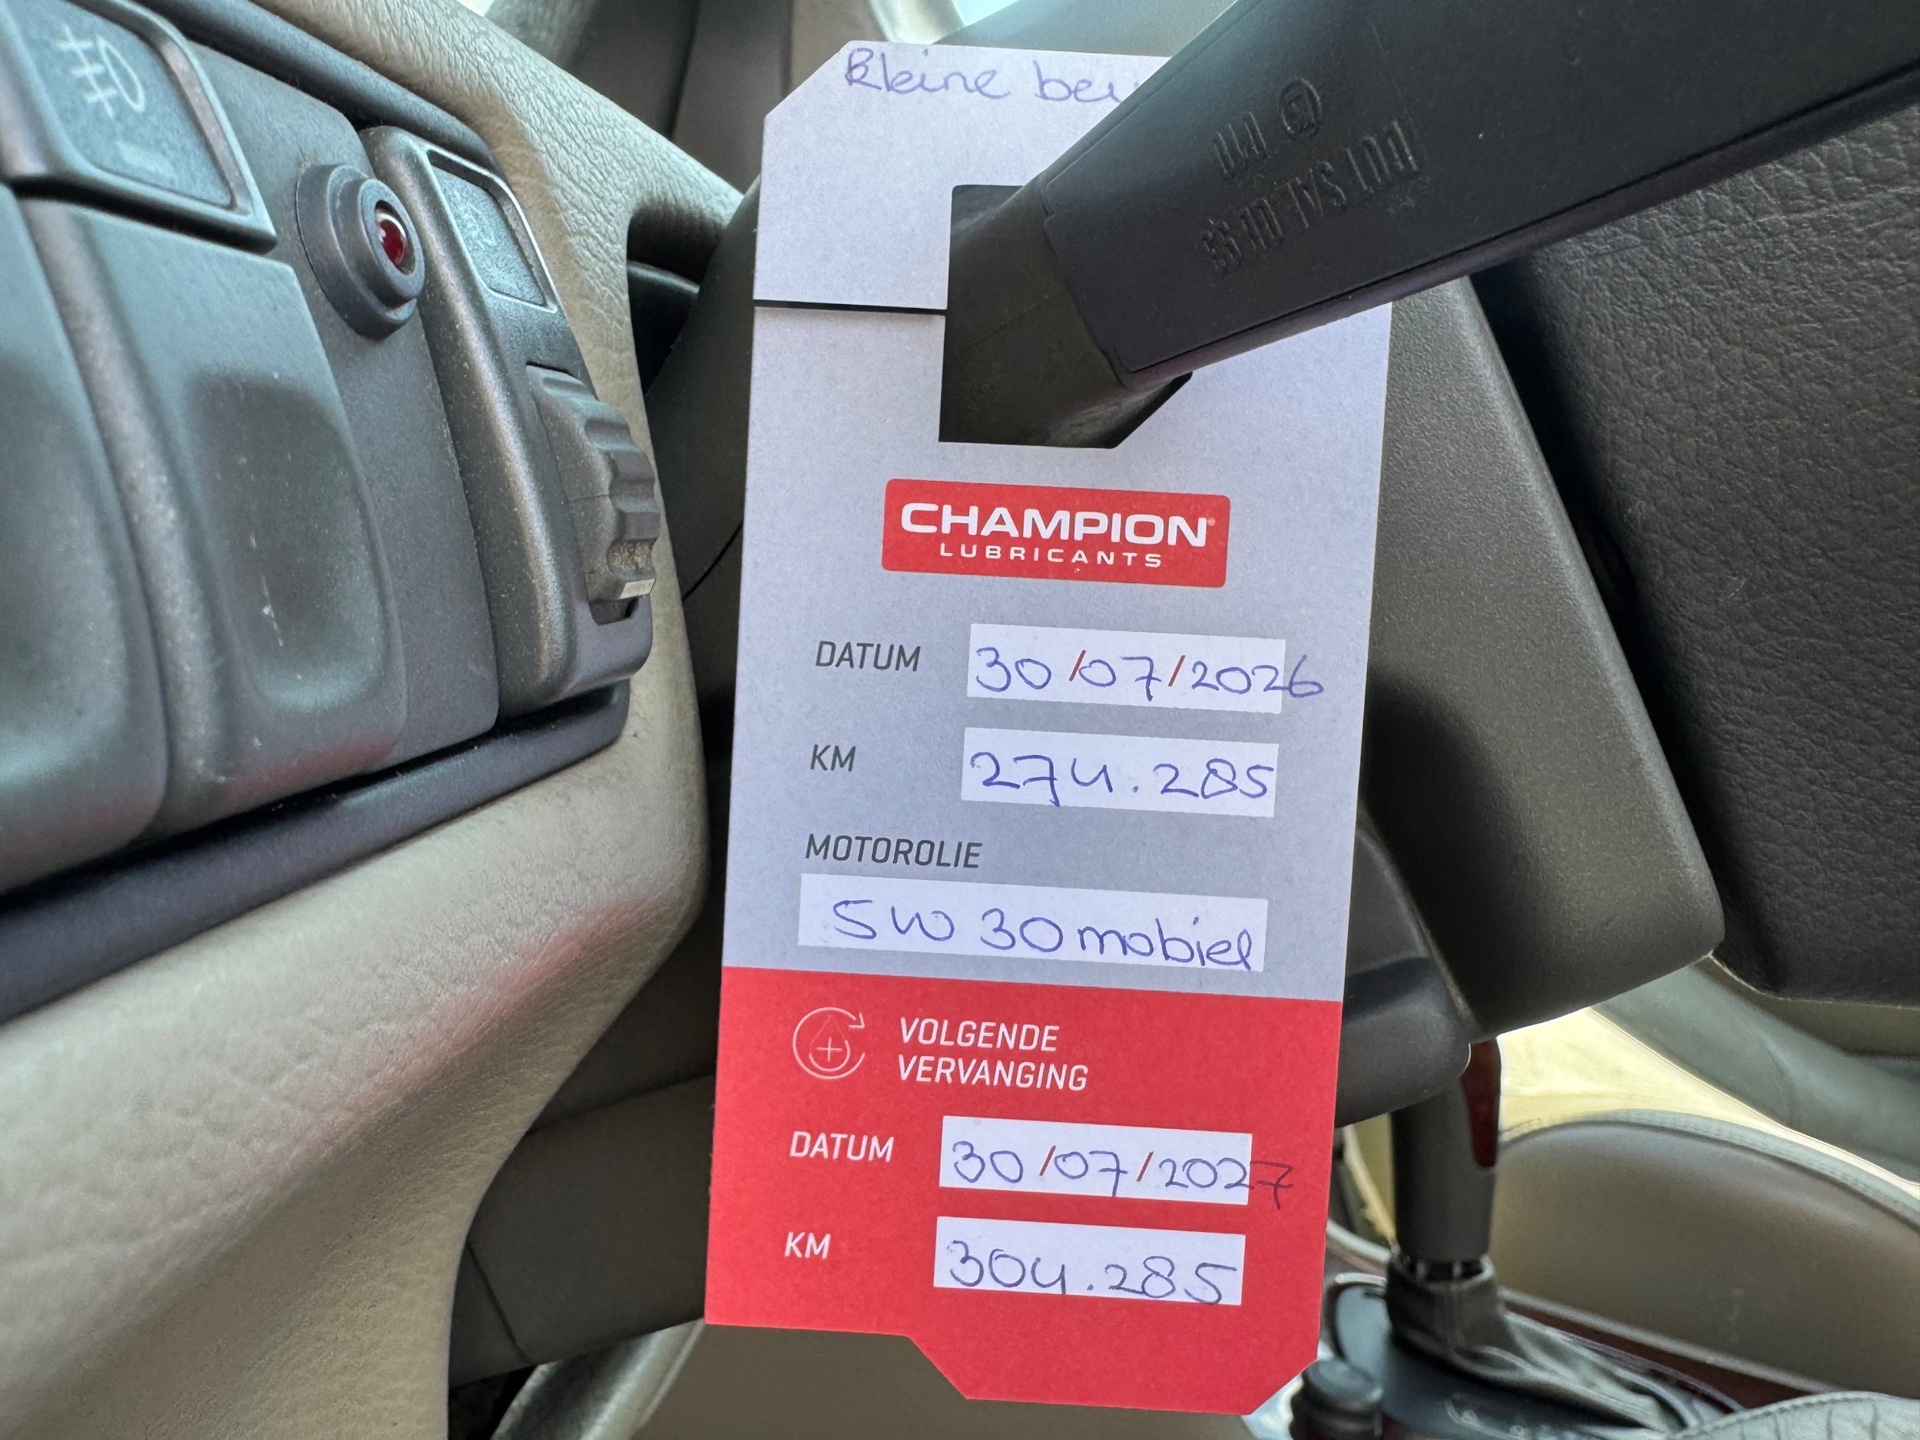 Kleine
CHAMPION
LUBRICANTS
DATUM 30/07/2026
KM 274.285
MOTOROLIE
5W 30 mobiel
VOLGENDE
VERVANGING
DATUM 30/07/2027
KM 304.285